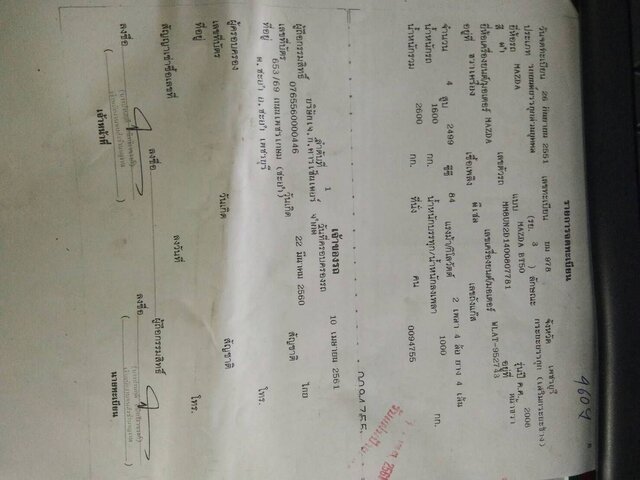 4607
รายการจดทะเบียน
วันจดทะเบียน 26 กันยายน 2561 เลขทะเบียน ยม 978 จังหวัด เพชรบุรี
ประเภท รถยนต์บรรทุกส่วนบุคคล (รย. 3 ) ลักษณะ กระบะบรรทุก (เสริมกระบะข้าง)
ยี่ห้อรถ MAZDA แบบ MAZDA BT50 รุ่นปี ค.ศ. 2008
สี ดำ เลขตัวรถ อยู่ที่ หน้าขวา
ยี่ห้อเครื่องยนต์/มอเตอร์ MAZDA เลขเครื่องยนต์/มอเตอร์ WLAT-952743
อยู่ที่ ขวาเครื่อง เชื้อเพลิง ดีเซล เลขถังแก๊ส
จำนวน 4 สูบ 2499 ซีซี 84 แรงม้า/กิโลวัตต์ 2 เพลา 4 ล้อ ยาง 4 เส้น
น้ำหนักรถ 1600 กก. น้ำหนักบรรทุก/น้ำหนักลงเพลา 1000 กก.
น้ำหนักรวม 2600 กก. ที่นั่ง คน 0094755
เจ้าของรถ
ลำดับที่ 1 วันที่ครอบครองรถ 10 เมษายน 2561
ผู้ถือกรรมสิทธิ์
เลขที่บัตร 0765560000446 วันเกิด 22 มีนาคม 2560 สัญชาติ ไทย
ที่อยู่ 653/69 ถนนเพชรเกษม (ชะอำ)
ต.ชะอำ อ.ชะอำ เพชรบุรี โทร.
ผู้ครอบครอง
เลขที่บัตร วันเกิด สัญชาติ
ที่อยู่ โทร.
สัญญาเช่าซื้อเลขที่ ลงวันที่ ผู้ถือกรรมสิทธิ์
ลงชื่อ ลงชื่อ ลงชื่อ
เจ้าหน้าที่ นายทะเบียน